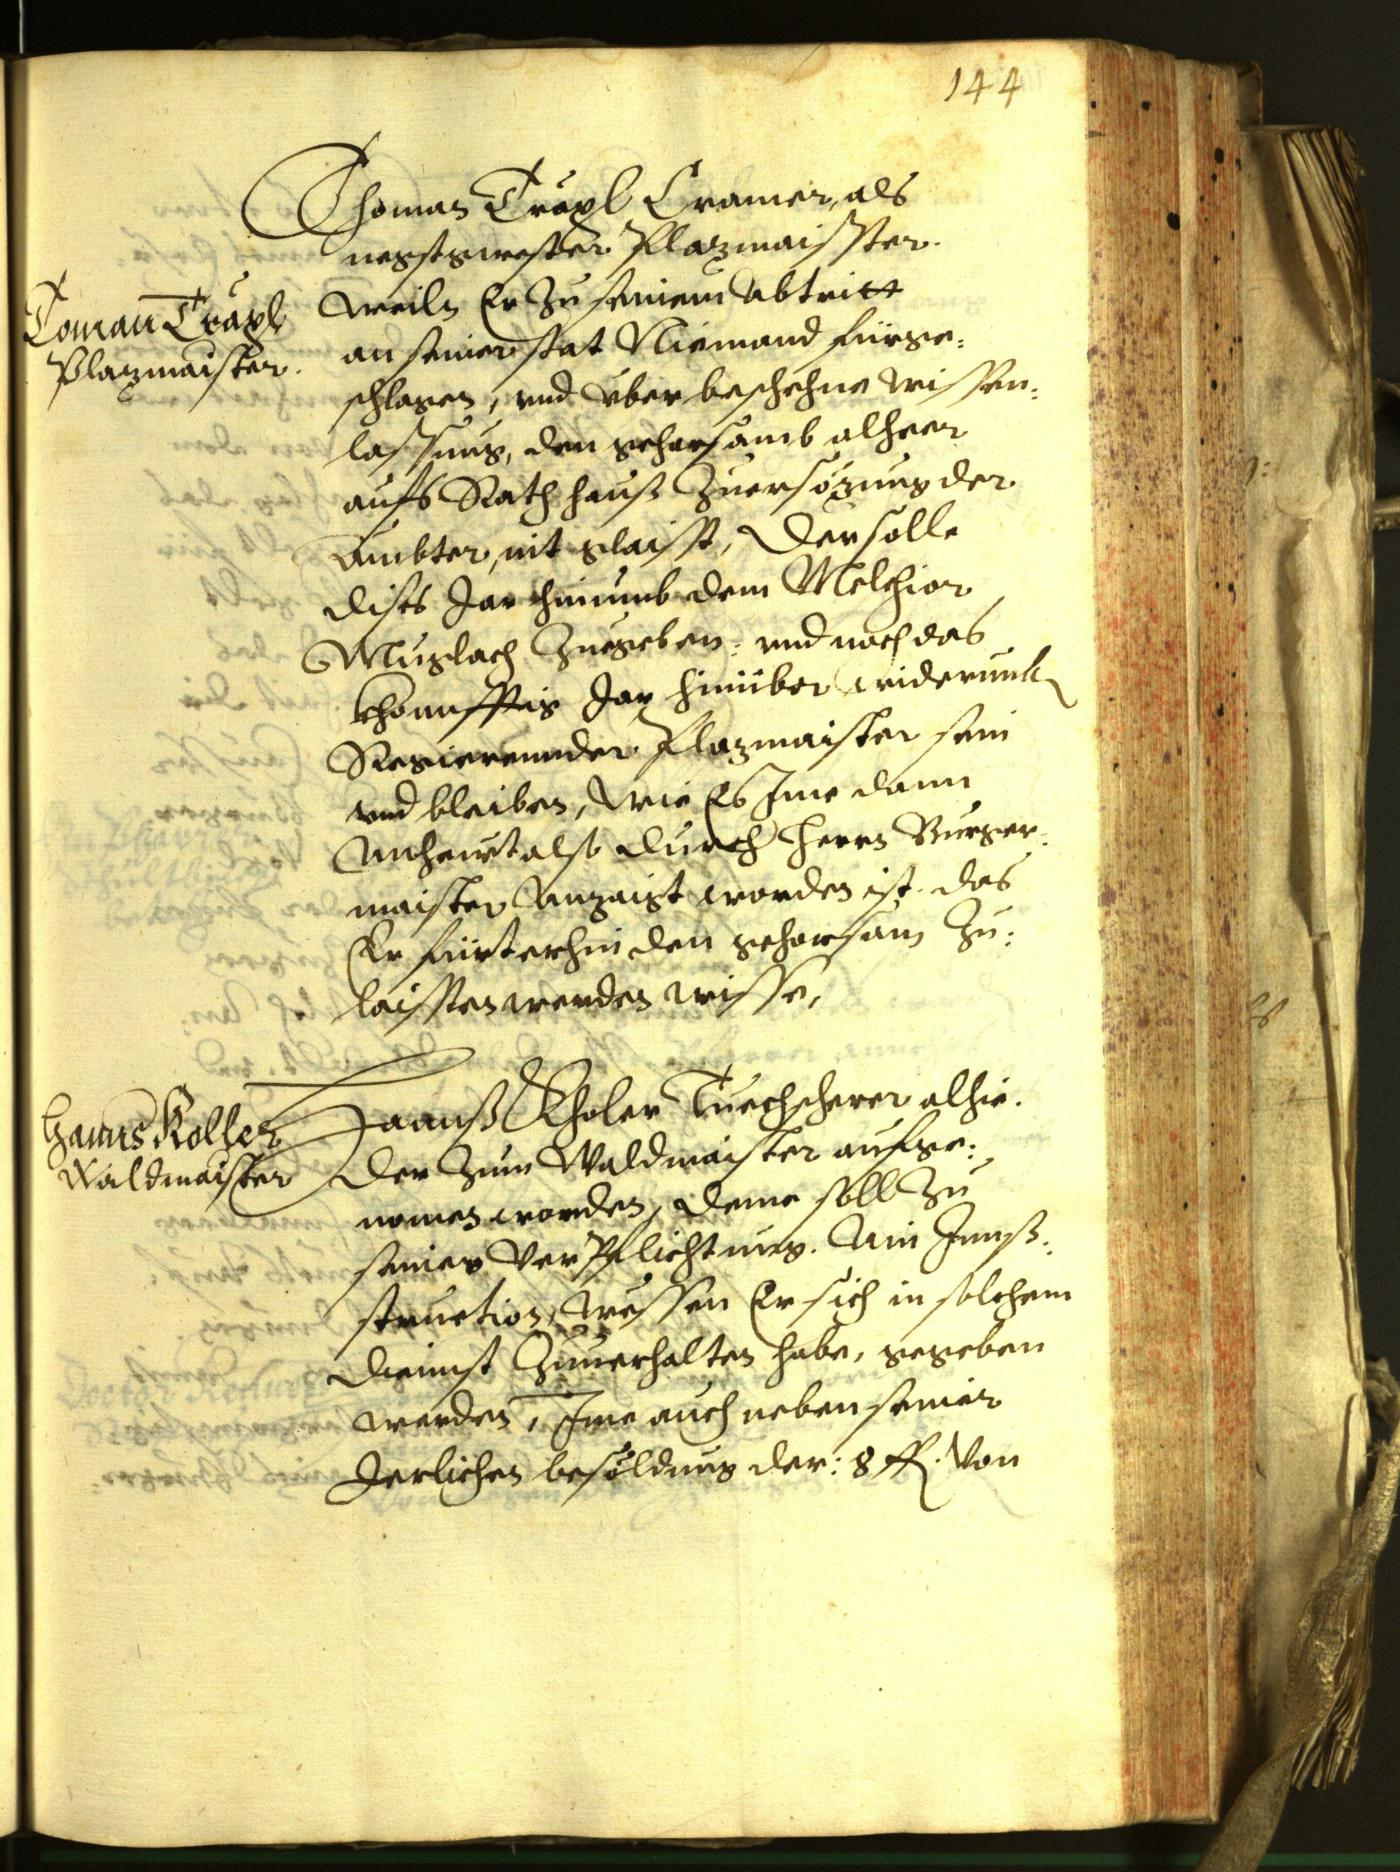 144
Thoman Träxl Cramer, als
negstgwester Plazmaisster.
weiln Er zu seinem Abtritt
an seiner stat Niemand fürge:
schlagen, vnd vber beschehne wissen:
lassung, den gehorsamb alheer
aufs Rathhauß zuersözung der
ämbter, nit glaisst, Der solle
dists Jar hinumb dem Melchior
Muglach zuegeben: vnd noch das
khonnfftig Jar hinüber widerumb
Regierennder Plazmaister sein
vnd bleiben, wie Es Ime dann
Anheut also durch herrn Burger:
maister Angaigt worden ist. das
Er fürterhin den gehorsam zu:
laisten werden wisse,
Toman Träxl
Plazmaister.
Hannß Kholer Tuechscherer alhie.
der zum Waldmaister aufge:
nomen worden, deme soll zu
seiner Verpflichtung. Ain Innß:
struction, wessen Er sich in solchem
diennst zuuerhalten habe, gegeben
werden, Ime auch neben seiner
Jerlichen besöldung der: 8 fl. Von
Hanns Kolher
Waldmaister